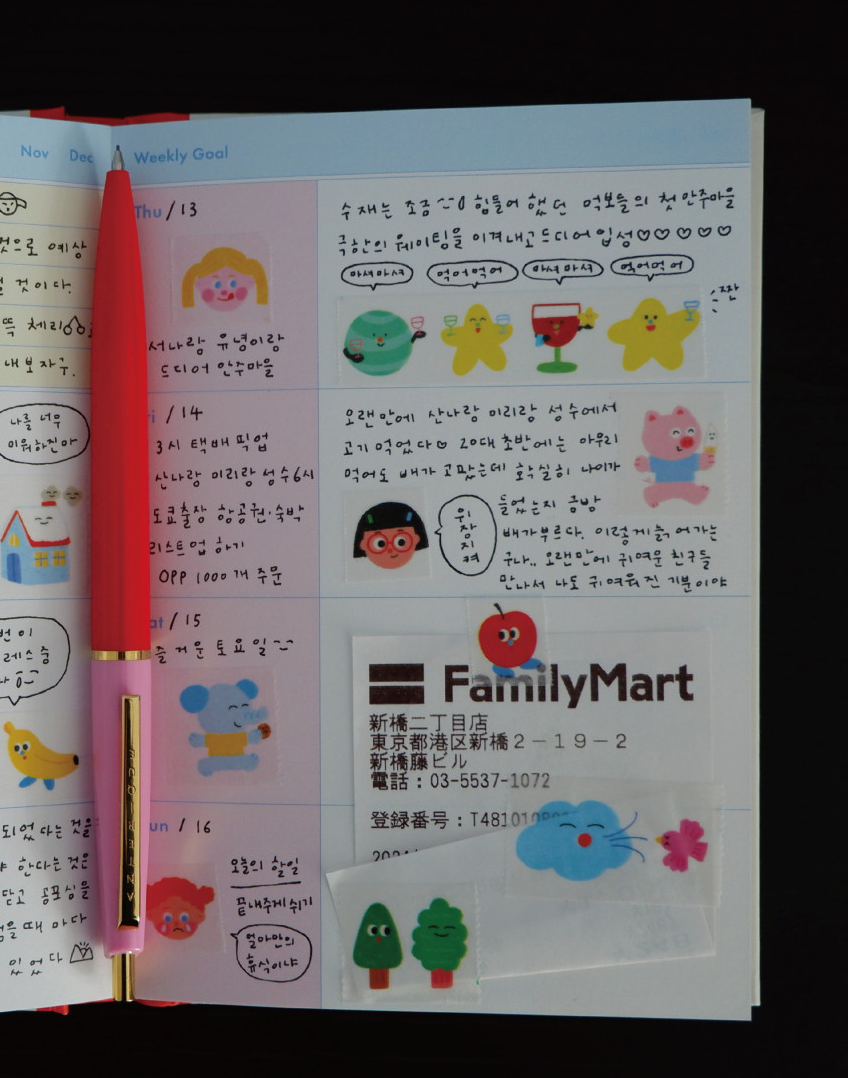 Nov Dec Weekly Goal
것으로 예상
것이다.
뜩 체리
내보자구.
나를 너무
미워하진마
번이
레스 중
되었다는 것을
한다는 것은
닫고 공포심을
을 때 마다
있었다
Thu / 13
서나랑 유녕이랑
드디어 안주마을
수재는 조금 힘들어 했던 먹보들의 첫 안주마을
극한의 웨이팅을 이겨내고 드디어 입성♡♡♡♡♡
마셔마셔 먹어먹어 마셔마셔 먹어먹어
짠
/ 14
3시 택배 픽업
산나랑 미리랑 성수 6시
도쿄출장 항공권·숙박
리스트업 하기
OPP 1000개 주문
오랜만에 산나랑 미리랑 성수에서
고기 먹었다♡ 20대 초반에는 아무리
먹어도 배가 고팠는데 확실히 나이가
들었는지 금방
배가부르다. 이렇게 늙어가는
구나.. 오랜만에 귀여운 친구들
만나서 나도 귀여워진 기분이야
위장지켜
/ 15
즐거운 토요일
FamilyMart
新橋二丁目店
東京都港区新橋2-19-2
新橋藤ビル
電話:03-5537-1072
登録番号:T48101
/ 16
오늘의 할일
끝내주게 쉬기
얼마만의
휴식이냐
ANTERIQUE